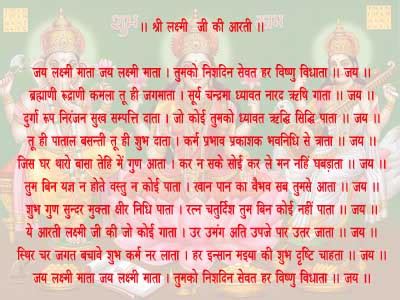 शुभ लाभ
।। श्री लक्ष्मी जी की आरती ।।
जय लक्ष्मी माता जय लक्ष्मी माता । तुमको निशदिन सेवत हर विष्णु विधाता ।। जय ।।
ब्रह्माणी रूद्राणी कमला तू ही जगमाता । सूर्य चन्द्रमा ध्यावत नारद ऋषि गाता ।। जय ।।
दुर्गा रूप निरंजन सुख सम्पत्ति दाता । जो कोई तुमको ध्यावत ऋद्धि सिद्धि पाता ।। जय ।।
तू ही पाताल बसन्ती तू ही शुभ दाता । कर्म प्रभाव प्रकाशक भवनिधि से त्राता ।। जय ।।
जिस घर थारो वासा तेहि में गुण आता । कर न सके सोई कर ले मन नहिं घबड़ाता ।। जय ।।
तुम बिन यज्ञ न होते वस्तु न कोई पाता । खान पान का वैभव सब तुमसे आता ।। जय ।।
शुभ गुण सुन्दर मुक्ता क्षीर निधि पाता । रत्न चतुर्दिश तुम बिन कोई नहीं पाता ।। जय ।।
ये आरती लक्ष्मी जी की जो कोई गाता । उर उमंग अति उपजे पार उतर जाता ।। जय ।।
स्थिर चर जगत बचावे शुभ कर्म नर लाता । हर इन्सान मइया की शुभ दृष्टि चाहता ।। जय ।।
जय लक्ष्मी माता जय लक्ष्मी माता । तुमको निशदिन सेवत हर विष्णु विधाता ।। जय ।।